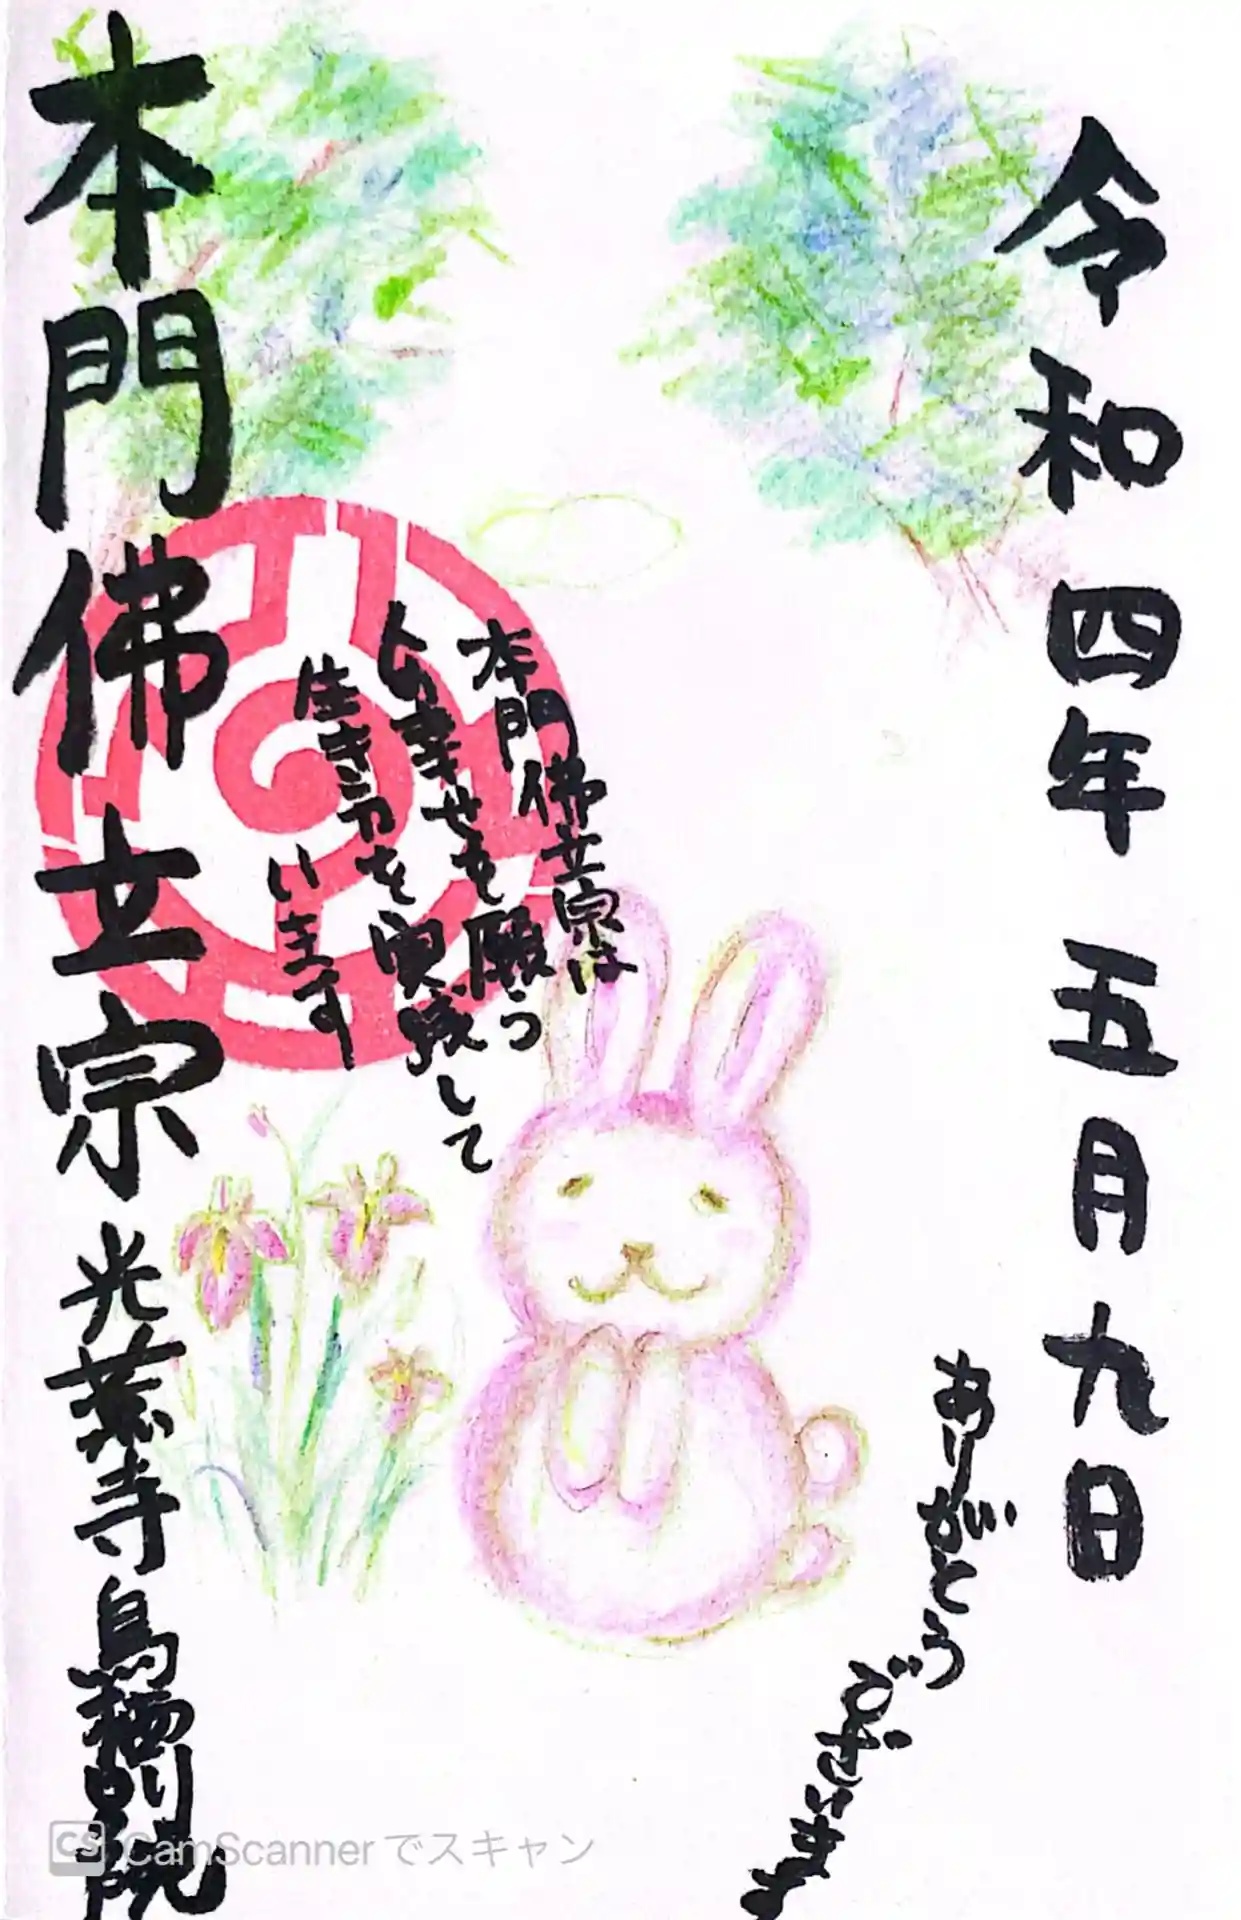 令和四年 五月九日
ありがとう
ございます
本門佛立宗は
人の幸せを願う
生き方を実践して
います
本門佛立宗 光薫寺鳥栖別院
CS CamScannerでスキャン